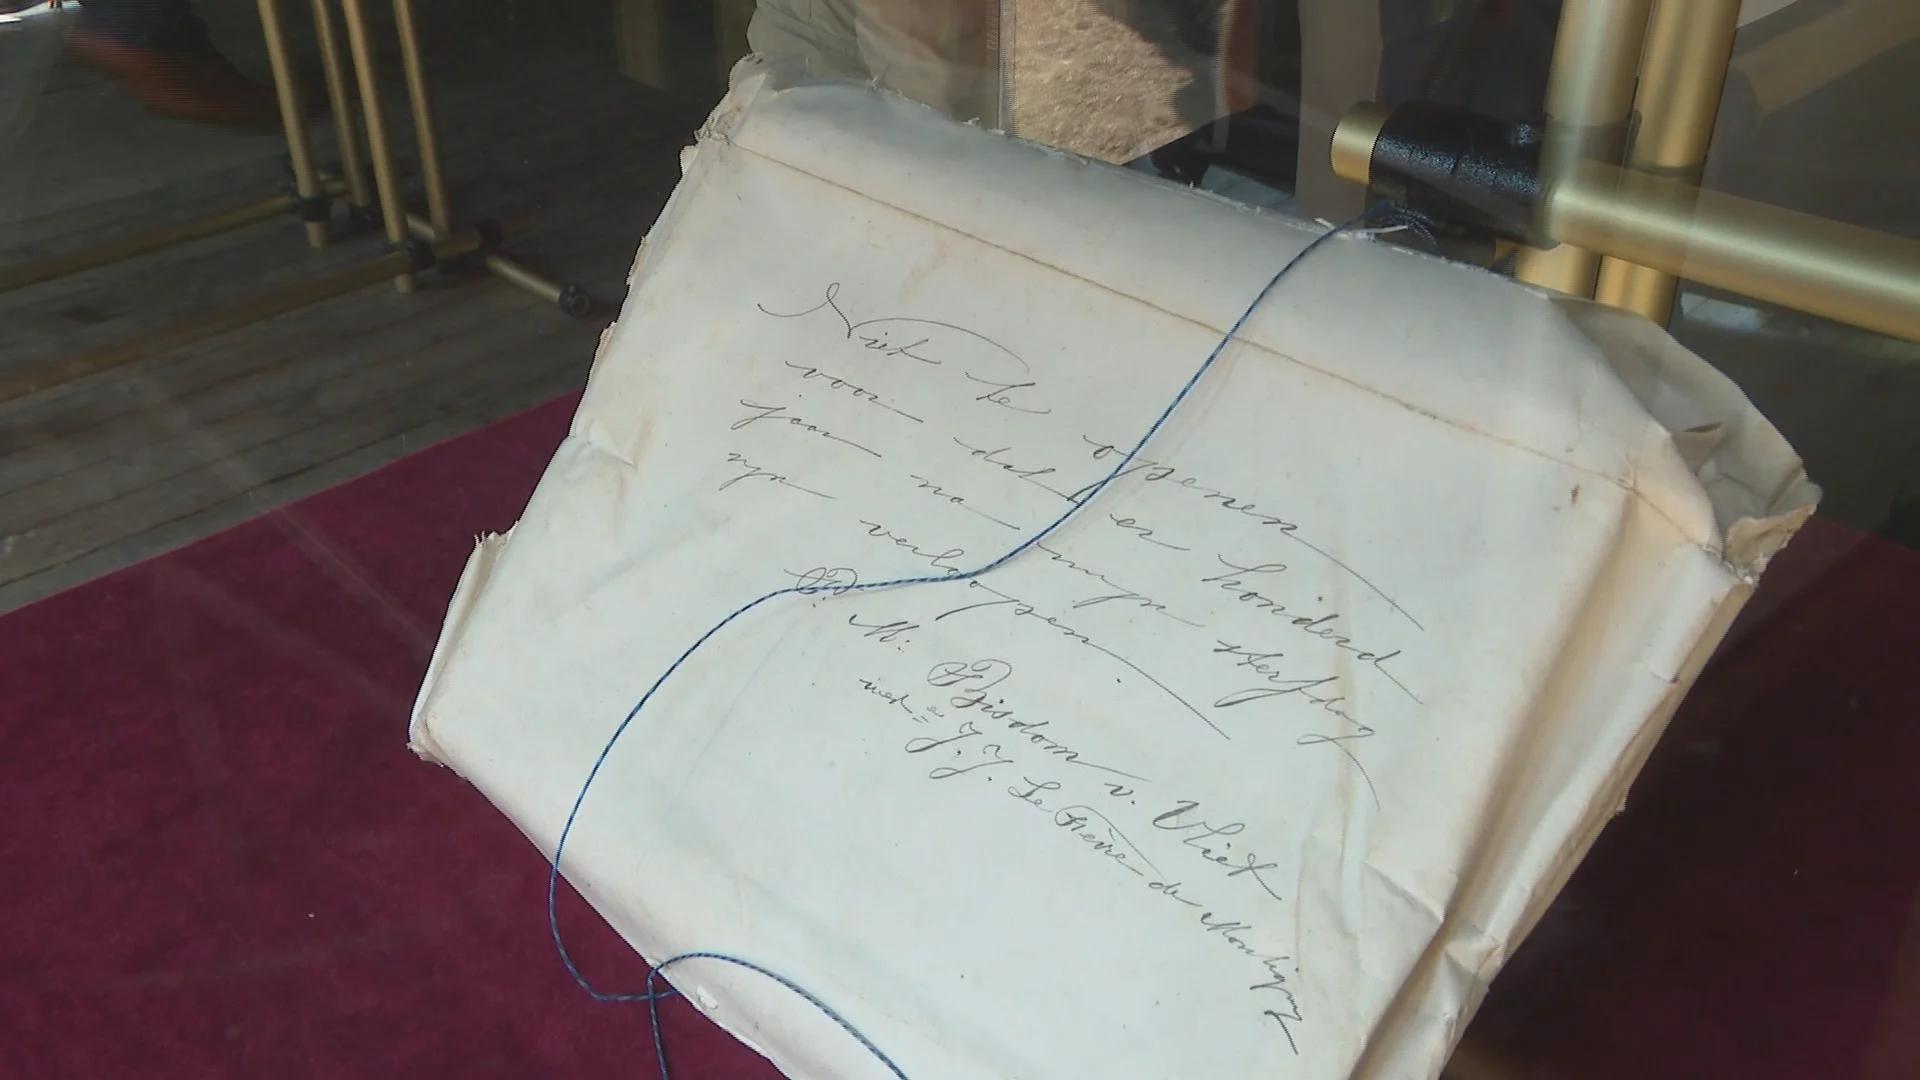 Niet te openen
voor dat er honderd
jaar na mijn sterfdag
zijn verloopen
P. M. Bisdom v. Vliet
wede J. J. Le Fèvre de Montigny